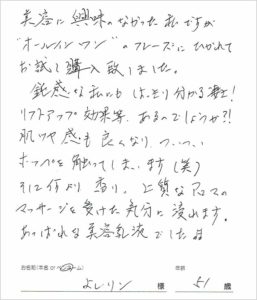 美容に興味のなかった私ですが
"オールインワン"のフレーズにひかれて
お試し購入致しました。
鈍感な私にもはっきり分かる凄さ!
リフトアップ効果等、あるのでしょうか?!
肌ツヤ感も良くなり、つい、つい
ホッペを触ってしまいます(笑)
そして何より香り。上質なアロマの
マッサージを受けた気分に浸れます。
あっぱれな美容乳液でした
お名前(本名 or ペンネーム) 年齢
よしりん 様 51 歳